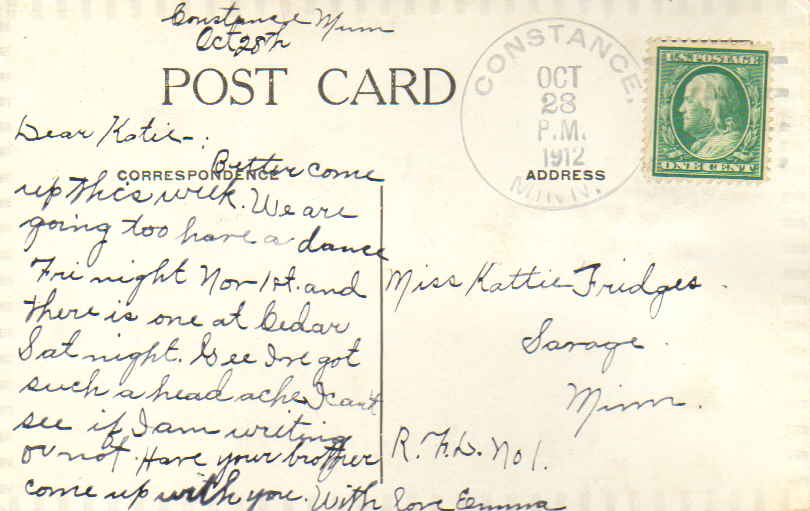 Constance Minn
Oct 28th
POST CARD
CORRESPONDENCE
Dear Katie-:
Better come
up this week. We are
going too have a dance
Fri night Nov 1st. and
there is one at Cedar
Sat night. Gee Ive got
such a head ache I cant
see if I am writing
or not. Have your brother
come up with you. With love Emma
CONSTANCE,
OCT
28
P.M.
1912
MINN.
U.S. POSTAGE
ONE CENT
ADDRESS
Miss Kattie Fridges.
Savage.
Minn.
R.F.D. No 1.